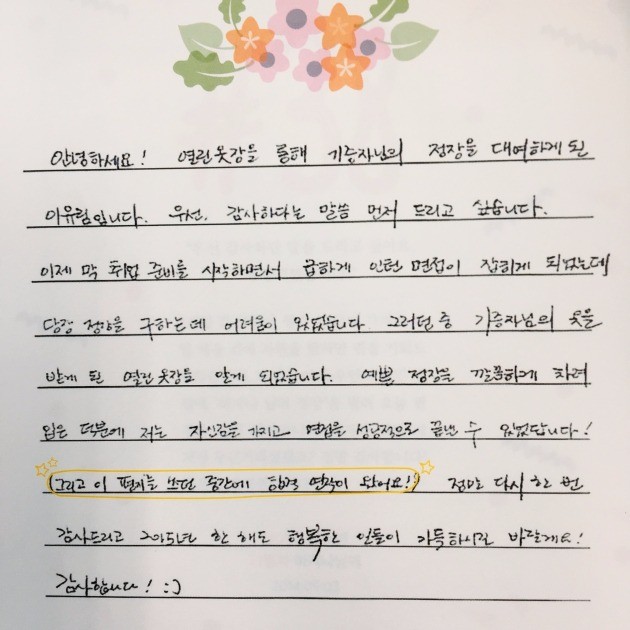 안녕하세요! 열린옷장을 통해 기증자님의 정장을 대여하게 된
이유림입니다. 우선, 감사하다는 말씀 먼저 드리고 싶습니다.
이제 막 취업 준비를 시작하면서 급하게 인턴 면접이 잡히게 되었는데
당장 정장을 구하는데 어려움이 있었습니다. 그러던 중 기증자님의 옷을
받게 된 열린옷장을 알게 되었습니다. 예쁜 정장을 깔끔하게 차려
입은 덕분에 저는 자신감을 가지고 면접을 성공적으로 끝낼 수 있었답니다!
(그리고 이 편지를 쓰던 중간에 합격 연락이 왔어요!!) 정말 다시 한 번
감사드리고 2015년 한 해도 행복한 일들이 가득하시길 바랄게요!
감사합니다! :)